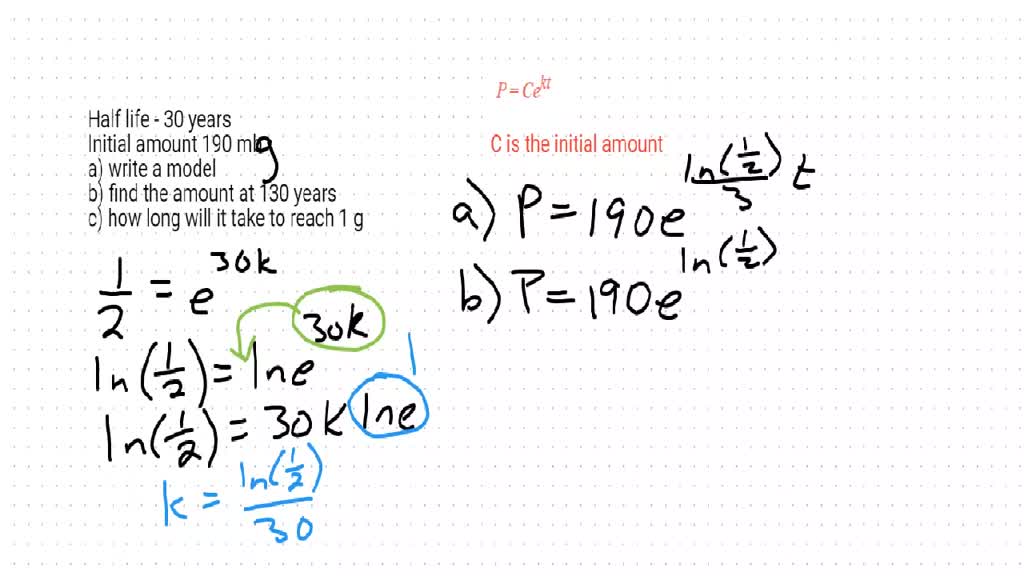 P = Ce^kt
Half life - 30 years
Initial amount 190 mg
C is the initial amount
a) write a model
b) find the amount at 130 years
c) how long will it take to reach 1 g
1/2 = e^30k
ln(1/2) = ln e^30k
ln(1/2) = 30k ln e
1
k = ln(1/2)/30
a) P = 190e^(ln(1/2)/3) t
b) P = 190e^ln(1/2)